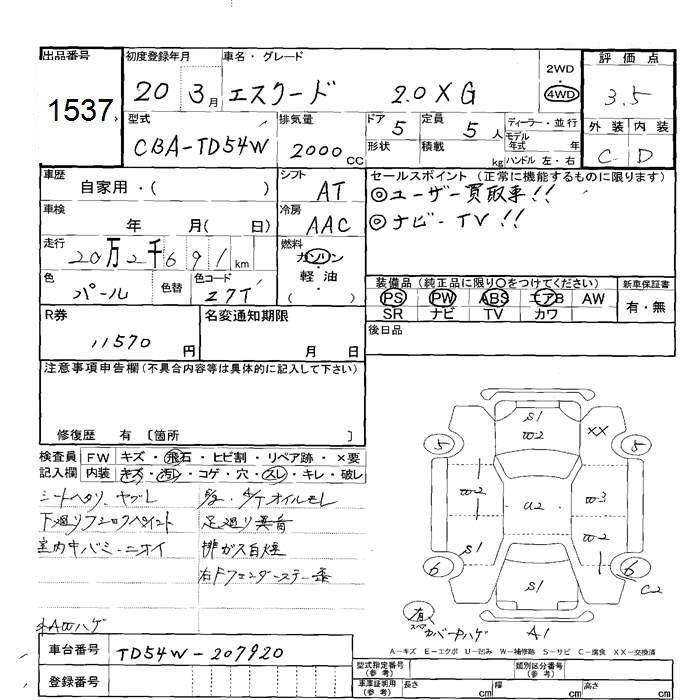 出品番号
1537
初度登録年月
20 3月
車名・グレード
エスクード 2.0XG
2WD
・
4WD
評価点
3.5
外装 内装
C D
型式
CBA-TD54W
排気量
2000cc
ドア 5
形状
定員 5人
積載 kg
ディーラー・並行
モデル年式 年
ハンドル 左・右
車歴
自家用・( )
シフト
AT
セールスポイント (正常に機能するものに限ります)
◎ユーザー買取車!!
◎ナビ-TV!!
車検
年 月( 日)
冷房
AAC
走行
20万2千691km
燃料
ガソリン
・
軽油
・
( )
色
パール
色替
色コード
Z7T
装備品 (純正品に限り○をつけてください)
PS PW ABS エアB AW
SR ナビ TV カワ
新車保証書
有・無
R券
11570円
名変通知期限
月 日
後日品
注意事項申告欄(不具合内容等は具体的に記入して下さい)
修復歴 有 〔箇所 〕
検査員記入欄
FW キズ・飛石・ヒビ割・リペア跡・×要
内装 キズ・汚レ・コゲ・穴・スレ・キレ・破レ
シートヘタリ、ヤブレ
下廻りフレロクペイント
室内中バミ-ニオイ
オイルモレ
足廻り異音
排ガス白煙
右Fフェンダーステー
AWハゲ
S1
W2
XX
5
5
W2
U2
W3
S1
S1
6
6
C2
有
スペア
カバーハゲ
A1
A-キズ E-エクボ U-凹み W-補修跡 S-サビ C-腐食 XX-交換済
車台番号
TD54W-207920
登録番号
型式指定番号(参考)
類別区分番号(参考)
車庫証明用(参考)
長さ cm
幅 cm
高さ cm